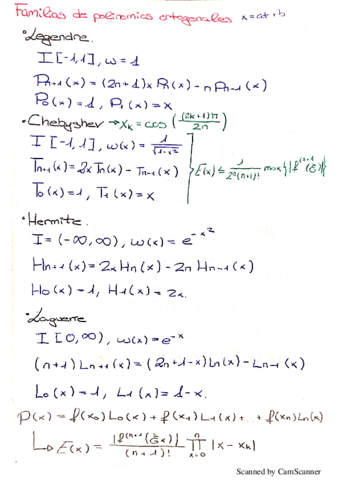 Familias de polinomios ortogonales x=at+b
• Legendre.
I [-1,1], ω=1
Pn+1(x) = (2n+1)x Pn(x) - n Pn-1(x)
P0(x)=1, P1(x)=x
• Chebyshev → xk = cos((2k+1)π/2n)
I [-1,1], ω(x)= 1/√(1-x²)
Tn+1(x)=2x Tn(x) - Tn-1(x) E(x) ≤ 1/(2ⁿ(n+1)!) max{|f^(n+1)(ξ)|}
T0(x)=1, T1(x)=x
• Hermite.
I=(-∞,∞), ω(x)=e^-x²
Hn+1(x)=2x Hn(x) - 2n Hn-1(x)
H0(x)=1, H1(x)=2x.
• Laguerre
I [0,∞), ω(x)=e^-x
(n+1) Ln+1(x)=(2n+1-x)Ln(x) - Ln-1(x)
L0(x)=1, L1(x)=1-x.
P(x) = f(x0)L0(x)+f(x1)L1(x)+..+f(xn)Ln(x)
↳ E(x) = |f^(n+1)(ξx)|/(n+1)! ∏ n x=0 |x-xk|
Scanned by CamScanner